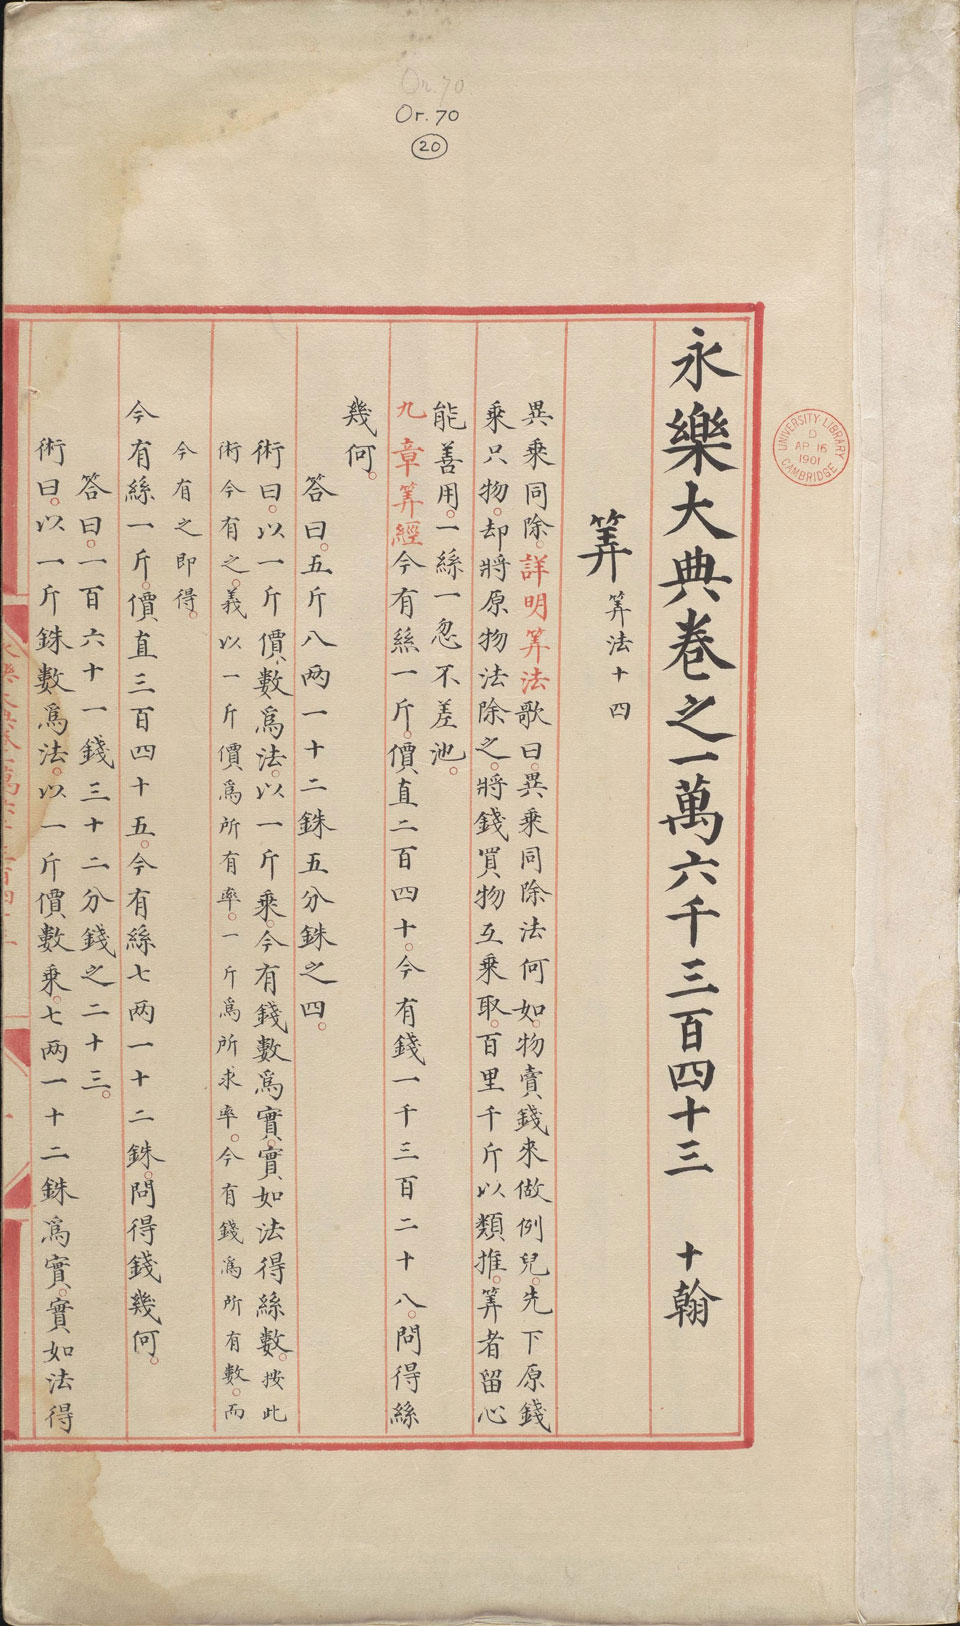 Or. 70
Or. 70
20
UNIVERSITY·LIBRARY
D
AP 16
1901
CAMBRIDGE
永樂大典卷之一萬六千三百四十三 十翰
筭 筭法十四
異乘同除。詳明筭法歌曰。異乘同除法何如。物賣錢來做例兒。先下原錢
乘只物。却將原物法除之。將錢買物互乘取。百里千斤以類推。筭者留心
能善用。一絲一忽不差池。
九章筭經今有絲一斤。價直二百四十。今有錢一千三百二十八。問得絲
幾何。
答曰。五斤八两一十二銖五分銖之四。
術曰。以一斤價數爲法。以一斤乘。今有錢數爲實。實如法得絲數。按此
術今有之。義以一斤價爲所有率。一斤爲所求率。今有錢爲所有數。而
今有之即得。
今有絲一斤。價直三百四十五。今有絲七两一十二銖。問得錢幾何。
答曰。一百六十一錢三十二分錢之二十三。
術曰。以一斤銖數爲法。以一斤價數乘。七两一十二銖爲實。實如法得